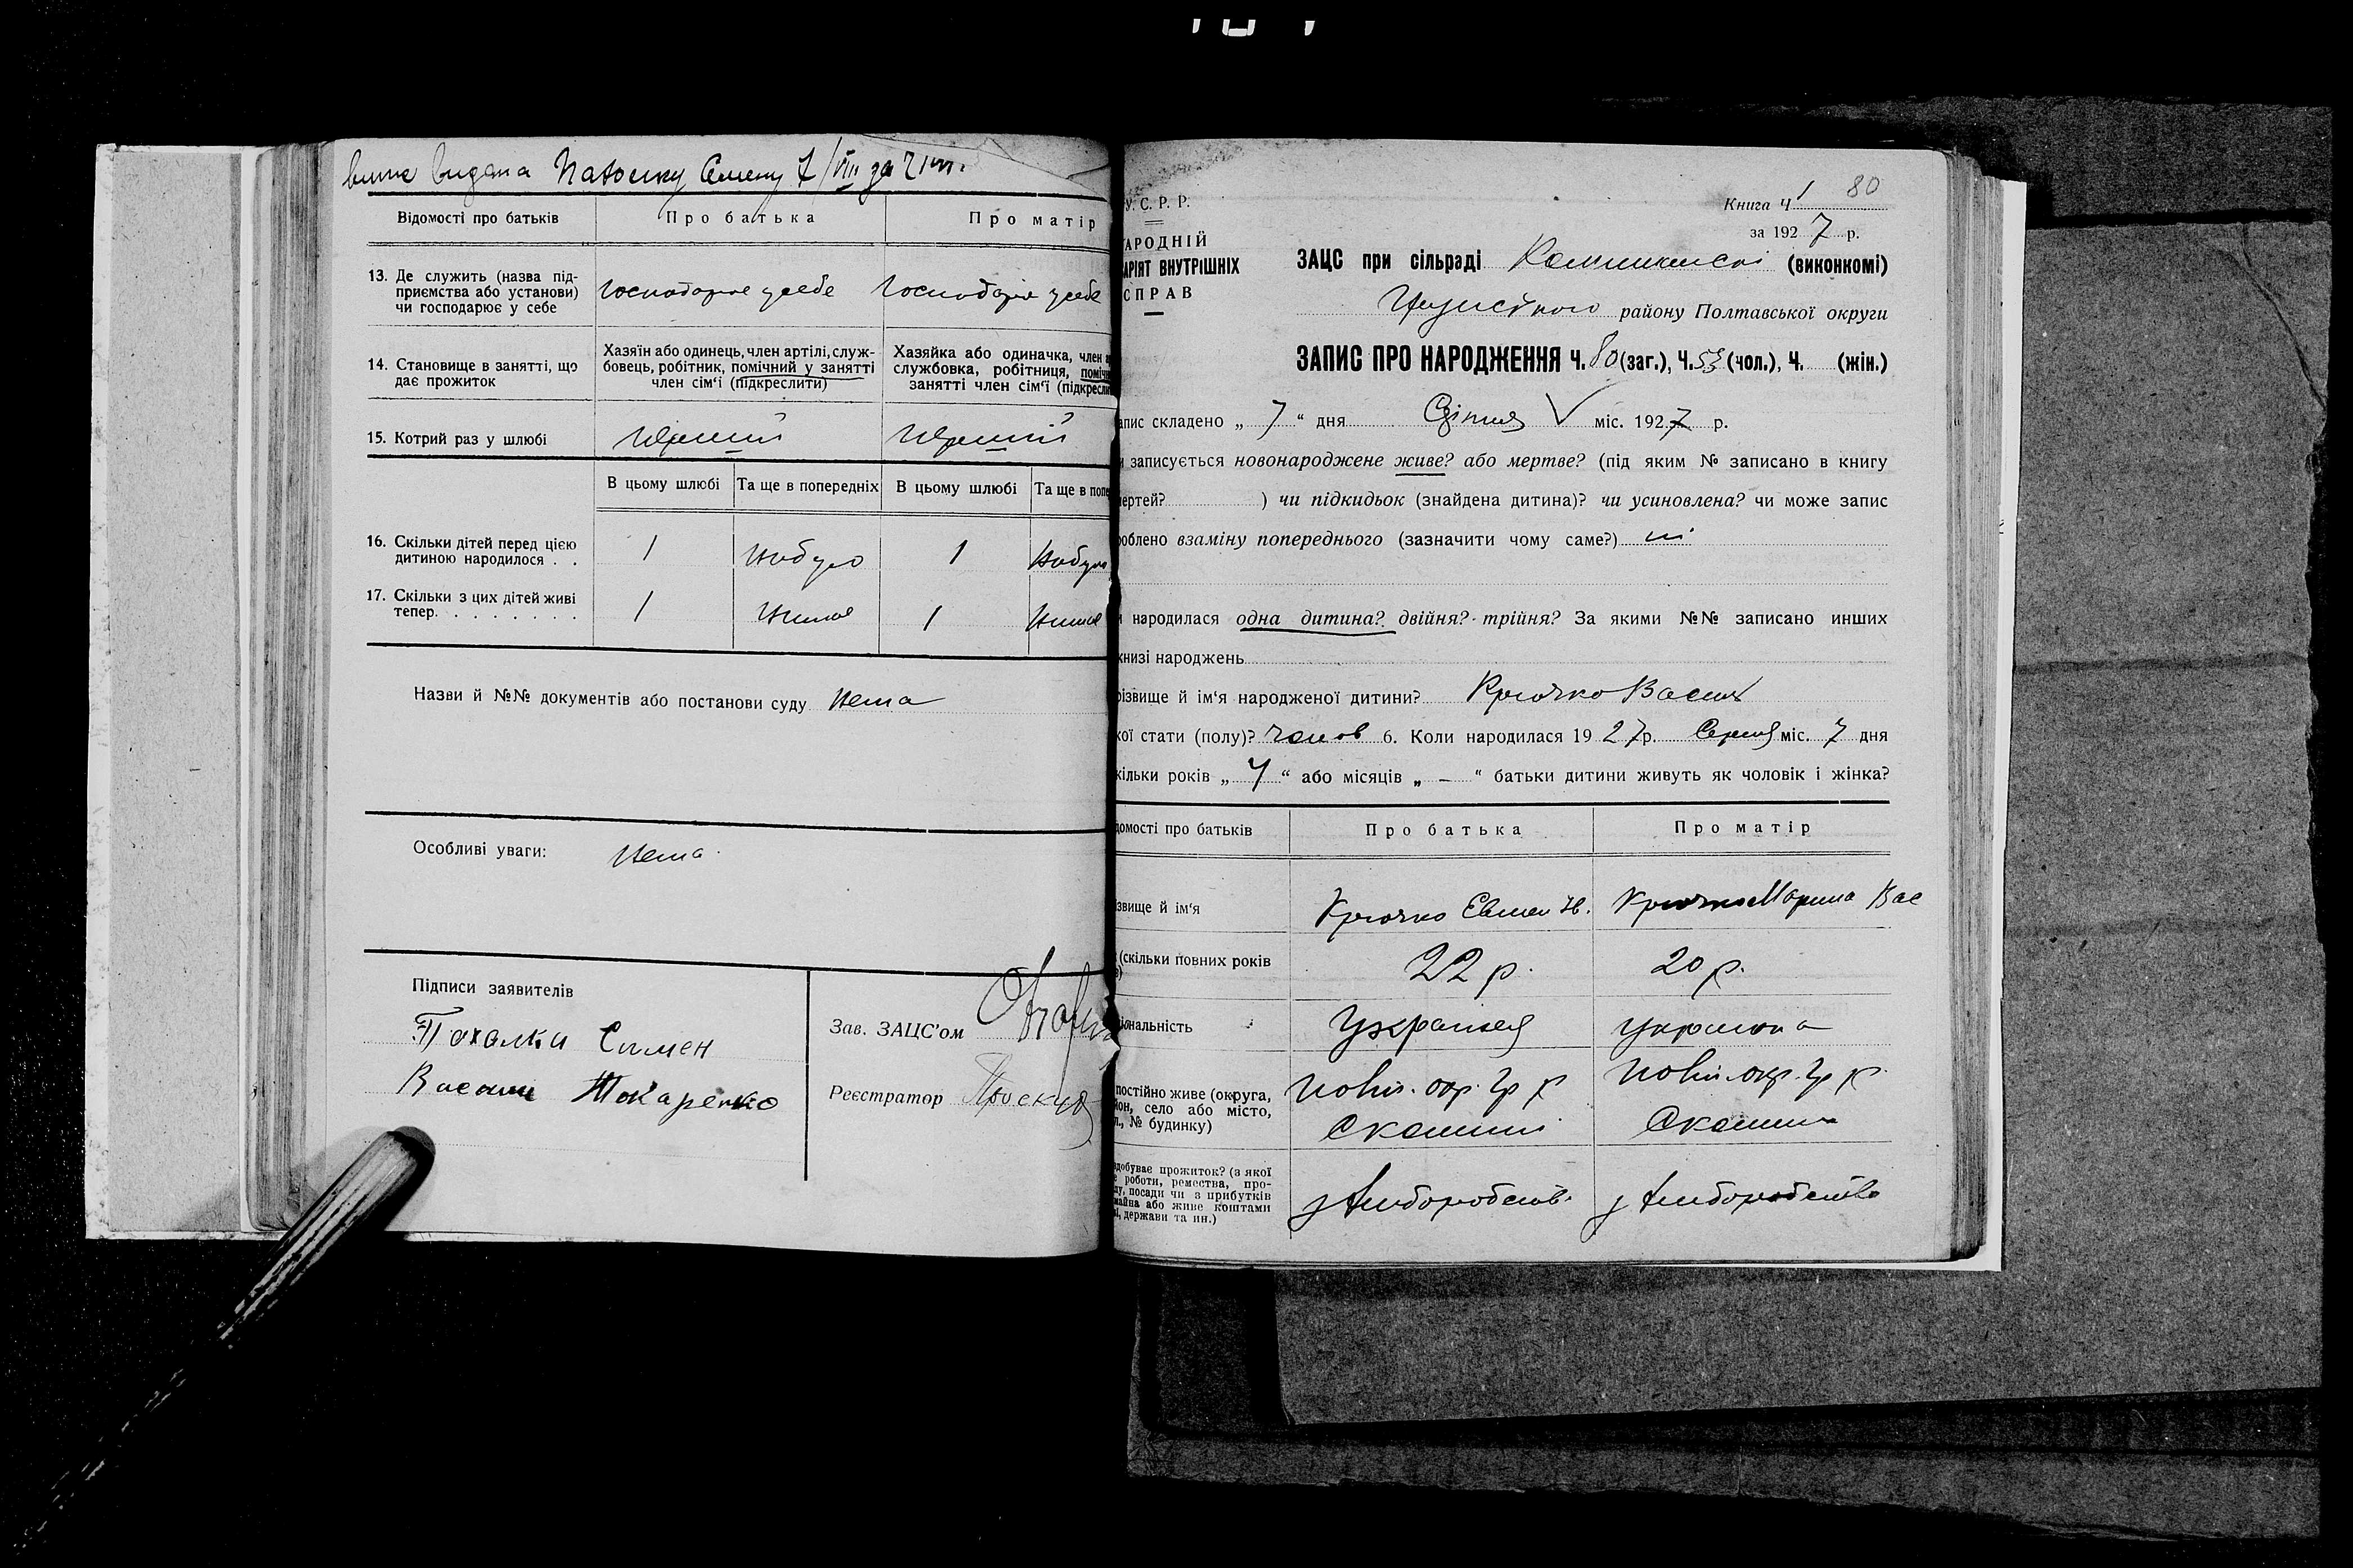 видана Семену 7/VIII за
Відомості про батьків Про батька Про матір
13. Де служить (назва під-
приємства або установи)
чи господарює у себе
Господарює у себе Господарює у себе
14. Становище в занятті, що
дає прожиток
Хазяїн або одинець, член артілі, служ-
бовець, робітник, помічний у занятті
член сім‘ї (підкреслити)
Хазяйка або одиначка, член а
службовка, робітниця, поміч
занятті член сім‘ї (підкресли
15. Котрий раз у шлюбі Перший Перший
В цьому шлюбі Та ще в попередніх В цьому шлюбі Та ще в попе
16. Скільки дітей перед цією
дитиною народилося . .
1 Небуло 1 Небуло
17. Скільки з цих дітей живі
тепер. . . . . . . .
1 Нима 1 Нима
Назви й №№ документів або постанови суду Нема
Особливі уваги: Нема
Підписи заявителів
Симен
Токаренко
Зав. ЗАЦС’ом
Реєстратор
Книга Ч 1 80
за 1927 р.
У. С. Р. Р.
АРОДНІЙ
АРІЯТ ВНУТРІШНІХ
СПРАВ
ЗАЦС при сільраді (виконкомі)
району Полтавської округи
ЗАПИС ПРО НАРОДЖЕННЯ Ч. 80 (заг.), Ч. 53 (чол.), Ч. (жін.)
апис складено „ 7 “ дня Серпня міс. 1927 р.
и записується новонароджене живе? або мертве? (під яким № записано в книгу
мертей? ) чи підкидьок (знайдена дитина)? чи усиновлена? чи може запис
роблено взаміну попереднього (зазначити чому саме?) ні
и народилася одна дитина? двійня? трійня? За якими №№ записано инших
книзі народжень
різвище й ім‘я народженої дитини? Крючко Васил
кої стати (полу)? чолов 6. Коли народилася 1927 р. Серпня міс. 7 дня
кільки років „ 4 “ або місяців „ – “ батьки дитини живуть як чоловік і жінка?
домості про батьків Про батька Про матір
ізвище й ім‘я Крючко Евмен Ів. Крючко Марина Вас
(скільки повних років
22 р. 20 р.
іональність Українец Українка
постійно живе (округа,
йон, село або місто,
л., № будинку)
Полт. окр. Гр р Полт. окр. Гр р.
добуває прожиток? (з якої
е роботи, ремества, про-
ду, посади чи з прибутків
майна або живе коштами
і, держави та ин.)
з хліборобств. з хліборобства